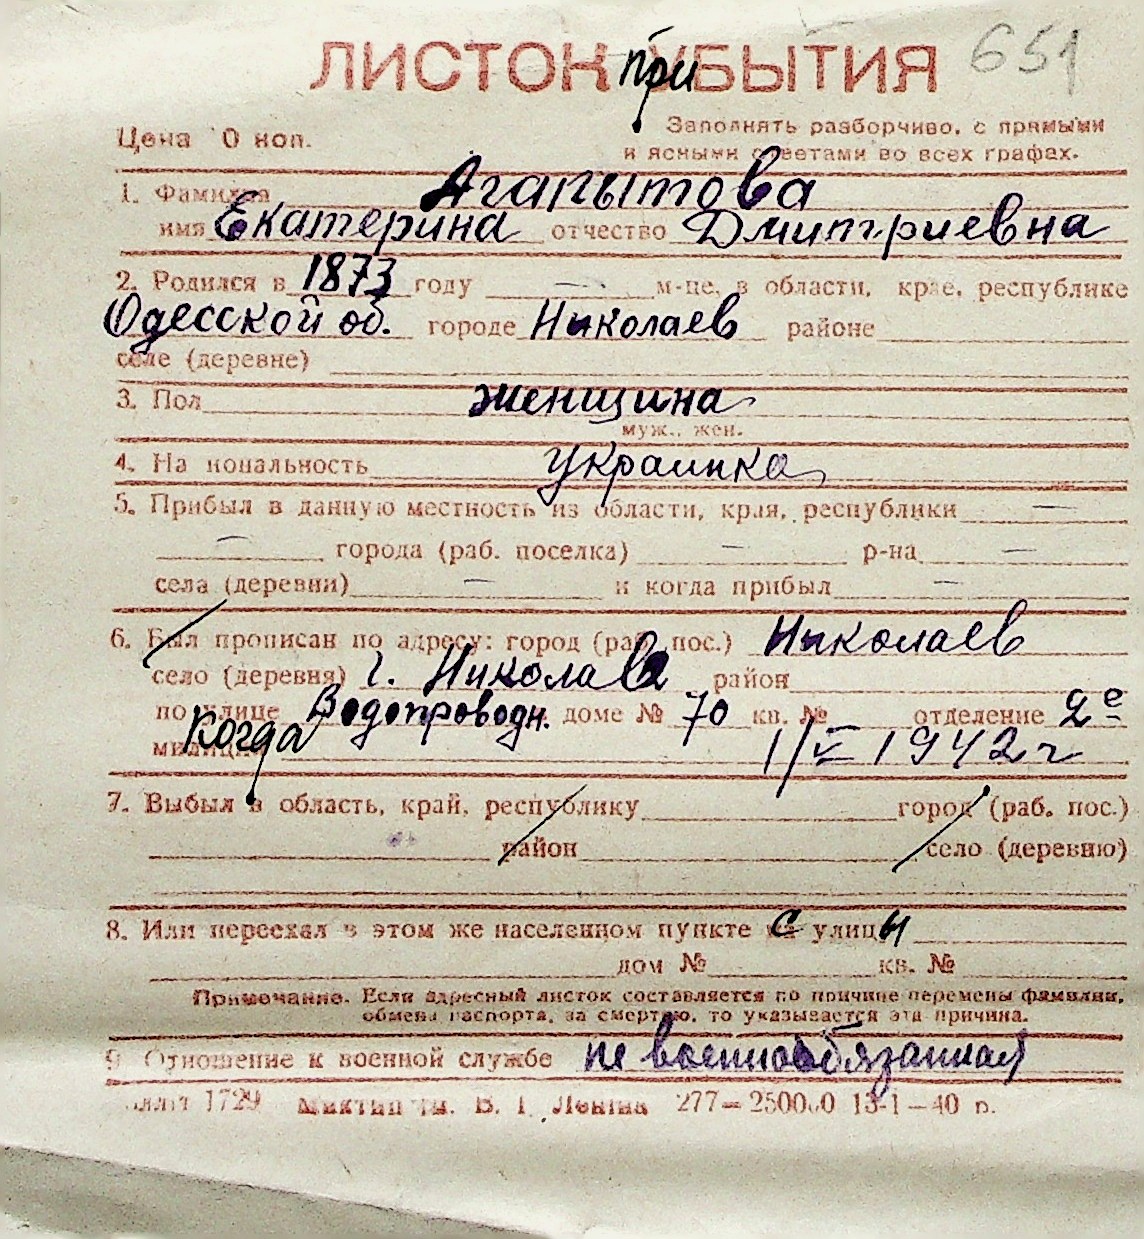 651
ЛИСТОК приУБЫТИЯ
Цена 0 коп.
Заполнять разборчиво, с прямыми
и ясными ответами во всех графах.
1. Фамилия Агапытова
имя Екатерина отчество Дмитриевна
2. Родился в 1873 году — м-це, в области, крае, республике
Одесской об. городе Николаев районе
селе (деревне)
3. Пол женщина
муж., жен.
4. Национальность украинка
5. Прибыл в данную местность из области, края, республики —
— города (раб. поселка) — р-на —
села (деревни) — и когда прибыл —
6. Был прописан по адресу: город (раб. пос.) Николаев
село (деревня) г. Николаев район
по улице Водопроводн. доме № 70 кв. № отделение 2е
милиции Когда 1/V 1942 г
7. Выбыл в область, край, республику город (раб. пос.)
район село (деревню)
8. Или переехал в этом же населенном пункте с улицы
дом № кв. №
Примечание. Если адресный листок составляется по причине перемены фамилии,
обмена паспорта, за смертью, то указывается эта причина.
9. Отношение к военной службе не военнообязанная
1729 им. В. І. Леніна 277—250000 13-1—40 р.